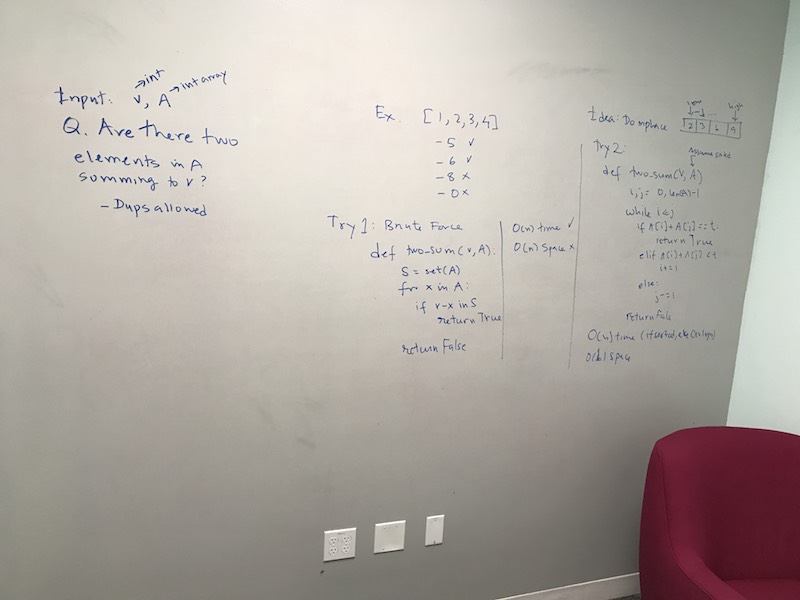 →int
→int array
Input: v, A
Q. Are there two
elements in A
summing to v?
- Dups allowed
Ex. [1, 2, 3, 4]
- 5 ✓
- 6 ✓
- 8 ×
- 0 ×
Try 1: Brute Force
def two-sum(v, A):
S = set(A)
for x in A:
if v-x in S
return True
return False
O(n) time ✓
O(n) Space ×
Idea: Do in place
low high
2 3 6 9
Try 2:
Assume sorted
def two-sum(V, A)
i, j = 0, len(A)-1
while i < j
if A[i]+A[j] == t:
return True
elif A[i]+A[j] < t
i += 1
else:
j -= 1
return False
O(n) time (if sorted, else
O(1) space